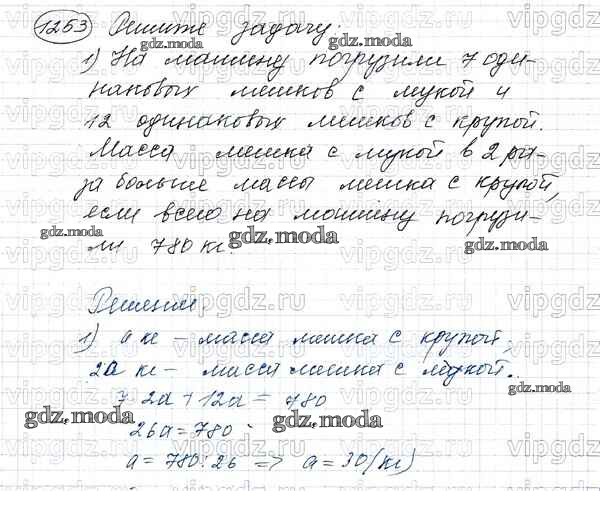 1253 Решите задачу:
1) На машину погрузили 7 оди-
наковых мешков с мукой и
12 одинаковых мешков с крупой.
Масса мешка с мукой в 2 ра-
за больше массы мешка с крупой,
если всего на машину погрузи-
ли 780 кг.
Решение.
1) а кг – масса мешка с крупой;
2а кг – масса мешка с мукой.
7·2а + 12а = 780
26а = 780
а = 780:26 => а = 30 (кг)